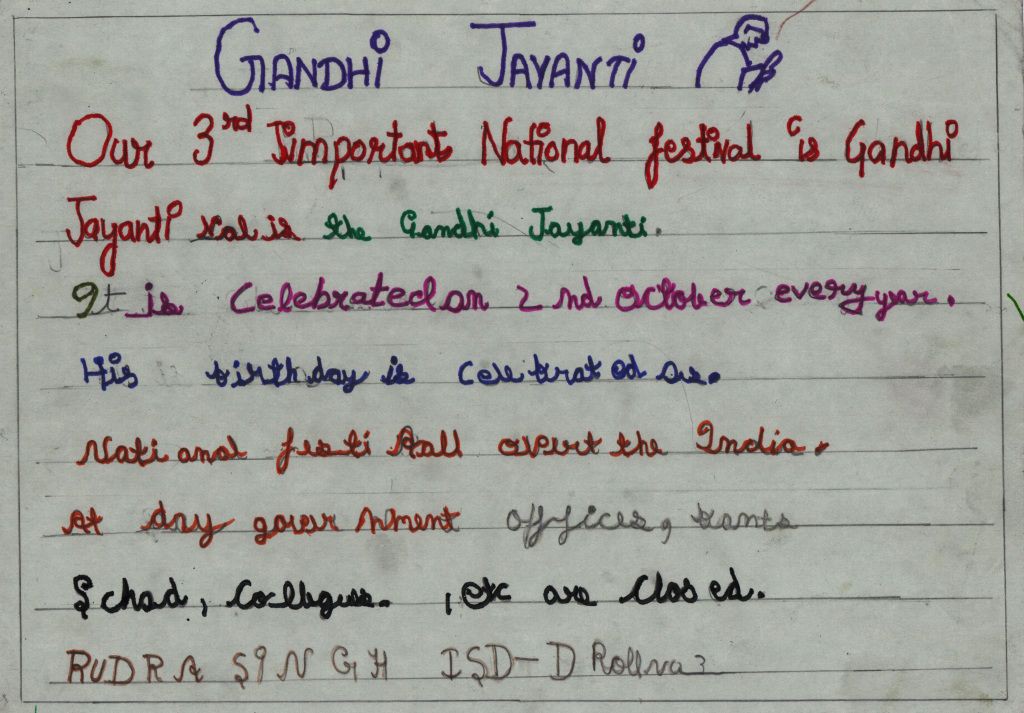 GANDHI JAYANTI
Our 3rd Iimportant National festival is Gandhi
Jayanti is the Gandhi Jayanti.
It is Celebrated on 2 nd October every year.
His birthday is Celebrated as.
National festi all over the India.
At dny gover nment offices,
Schad, Collegues. , etc are Closed.
RUDRA SINGH ISD-D Rollno 3